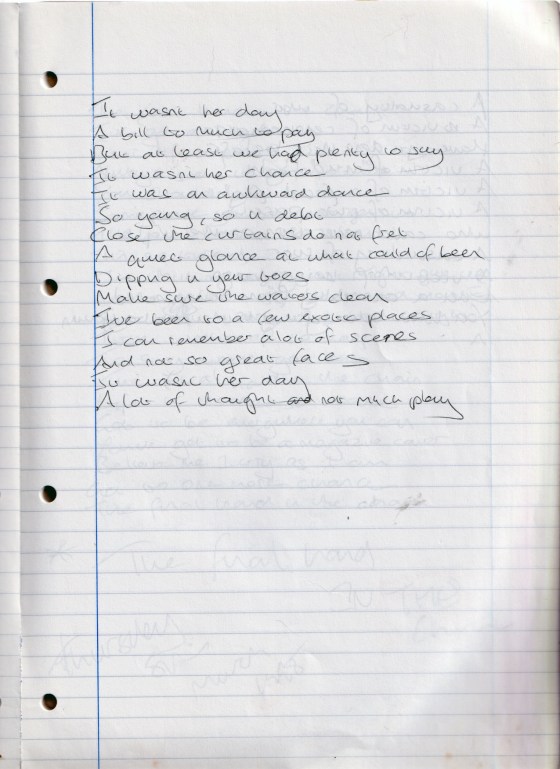 It wasnt her day
A bill to much to pay
But at least we had plenty to say
It wasnt her chance
It was an awkward dance
So young, so in debt
Close the curtains do not fret
A quiet glance at what could of been
Dipping in your toes
Make sure the waters clean
I've been to a few exotic places
I can remember alot of scenes
And not so great faces
It wasnt her day
A lot of thought and not much play